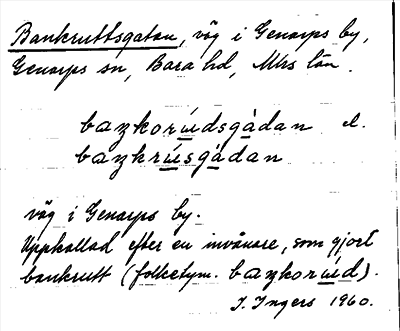 Bankruttsgatan, väg i Genarps by,
Genarps sn, Bara hd, Mhs län.
baŋkorúdsgàdan el.
baŋkrúsgàdan
väg i Genarps by.
Uppkallad efter en invånare, som gjort
bankrutt (folketym. baŋkorúd).
I. Ingers 1960.